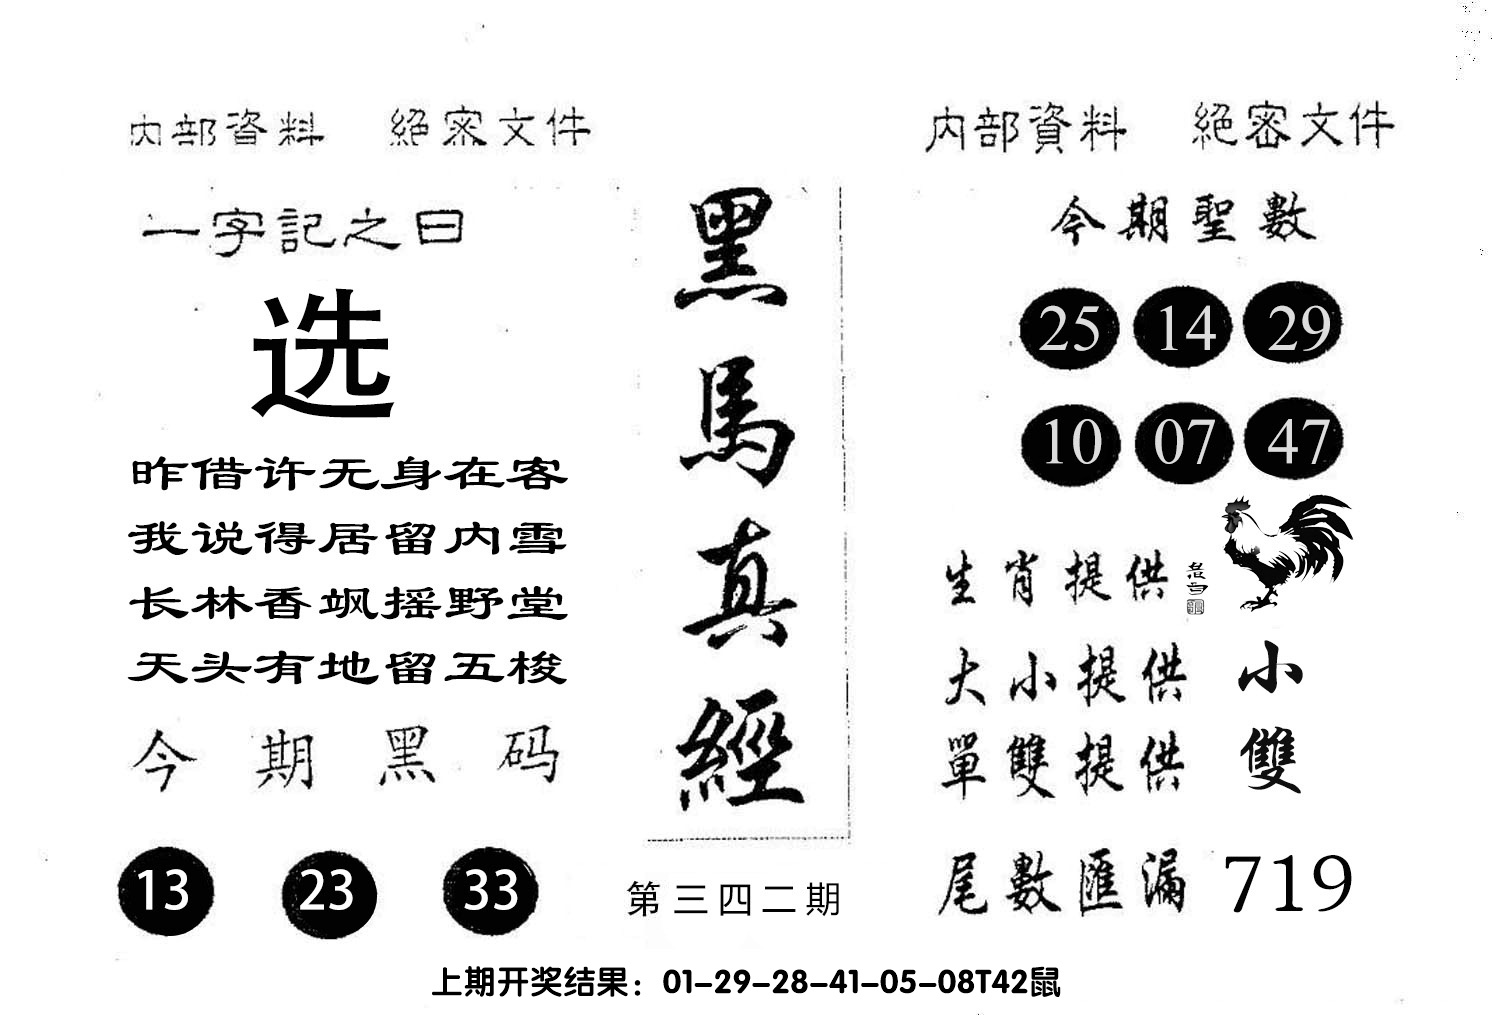 内部資料 絕密文件
一字記之曰
选
昨借许无身在客
我说得居留内雪
长林香飒摇野堂
天头有地留五梭
今期黑码
13 23 33
黑馬真經
第三四二期
内部資料 絕密文件
今期聖數
25 14 29
10 07 47
生肖提供
大小提供 小
單雙提供 雙
尾數匯漏 719
上期开奖结果：01-29-28-41-05-08T42鼠